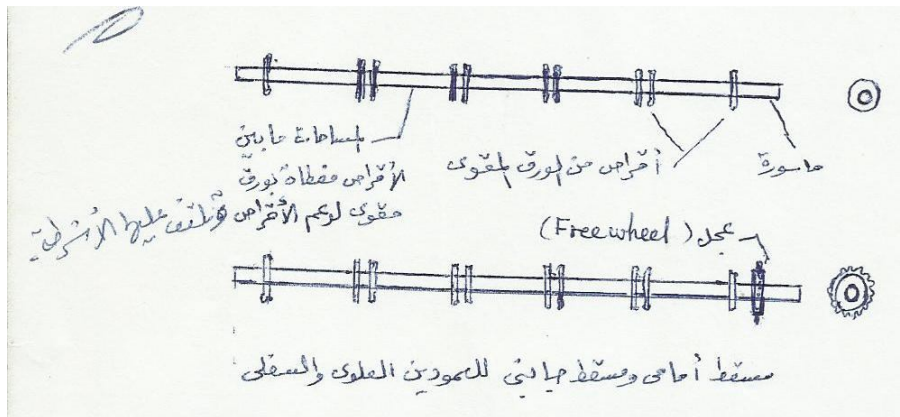 ماسورة
أقراص من الورق المقوى
المساحات ما بين
الأقراص مغطاة بورق
مقوى لدعم الأقراص وتلتف عليها الأشرطة
عجل (Free wheel)
مسقط أمامى ومسقط جانبى للعمودين العلوى والسفلى